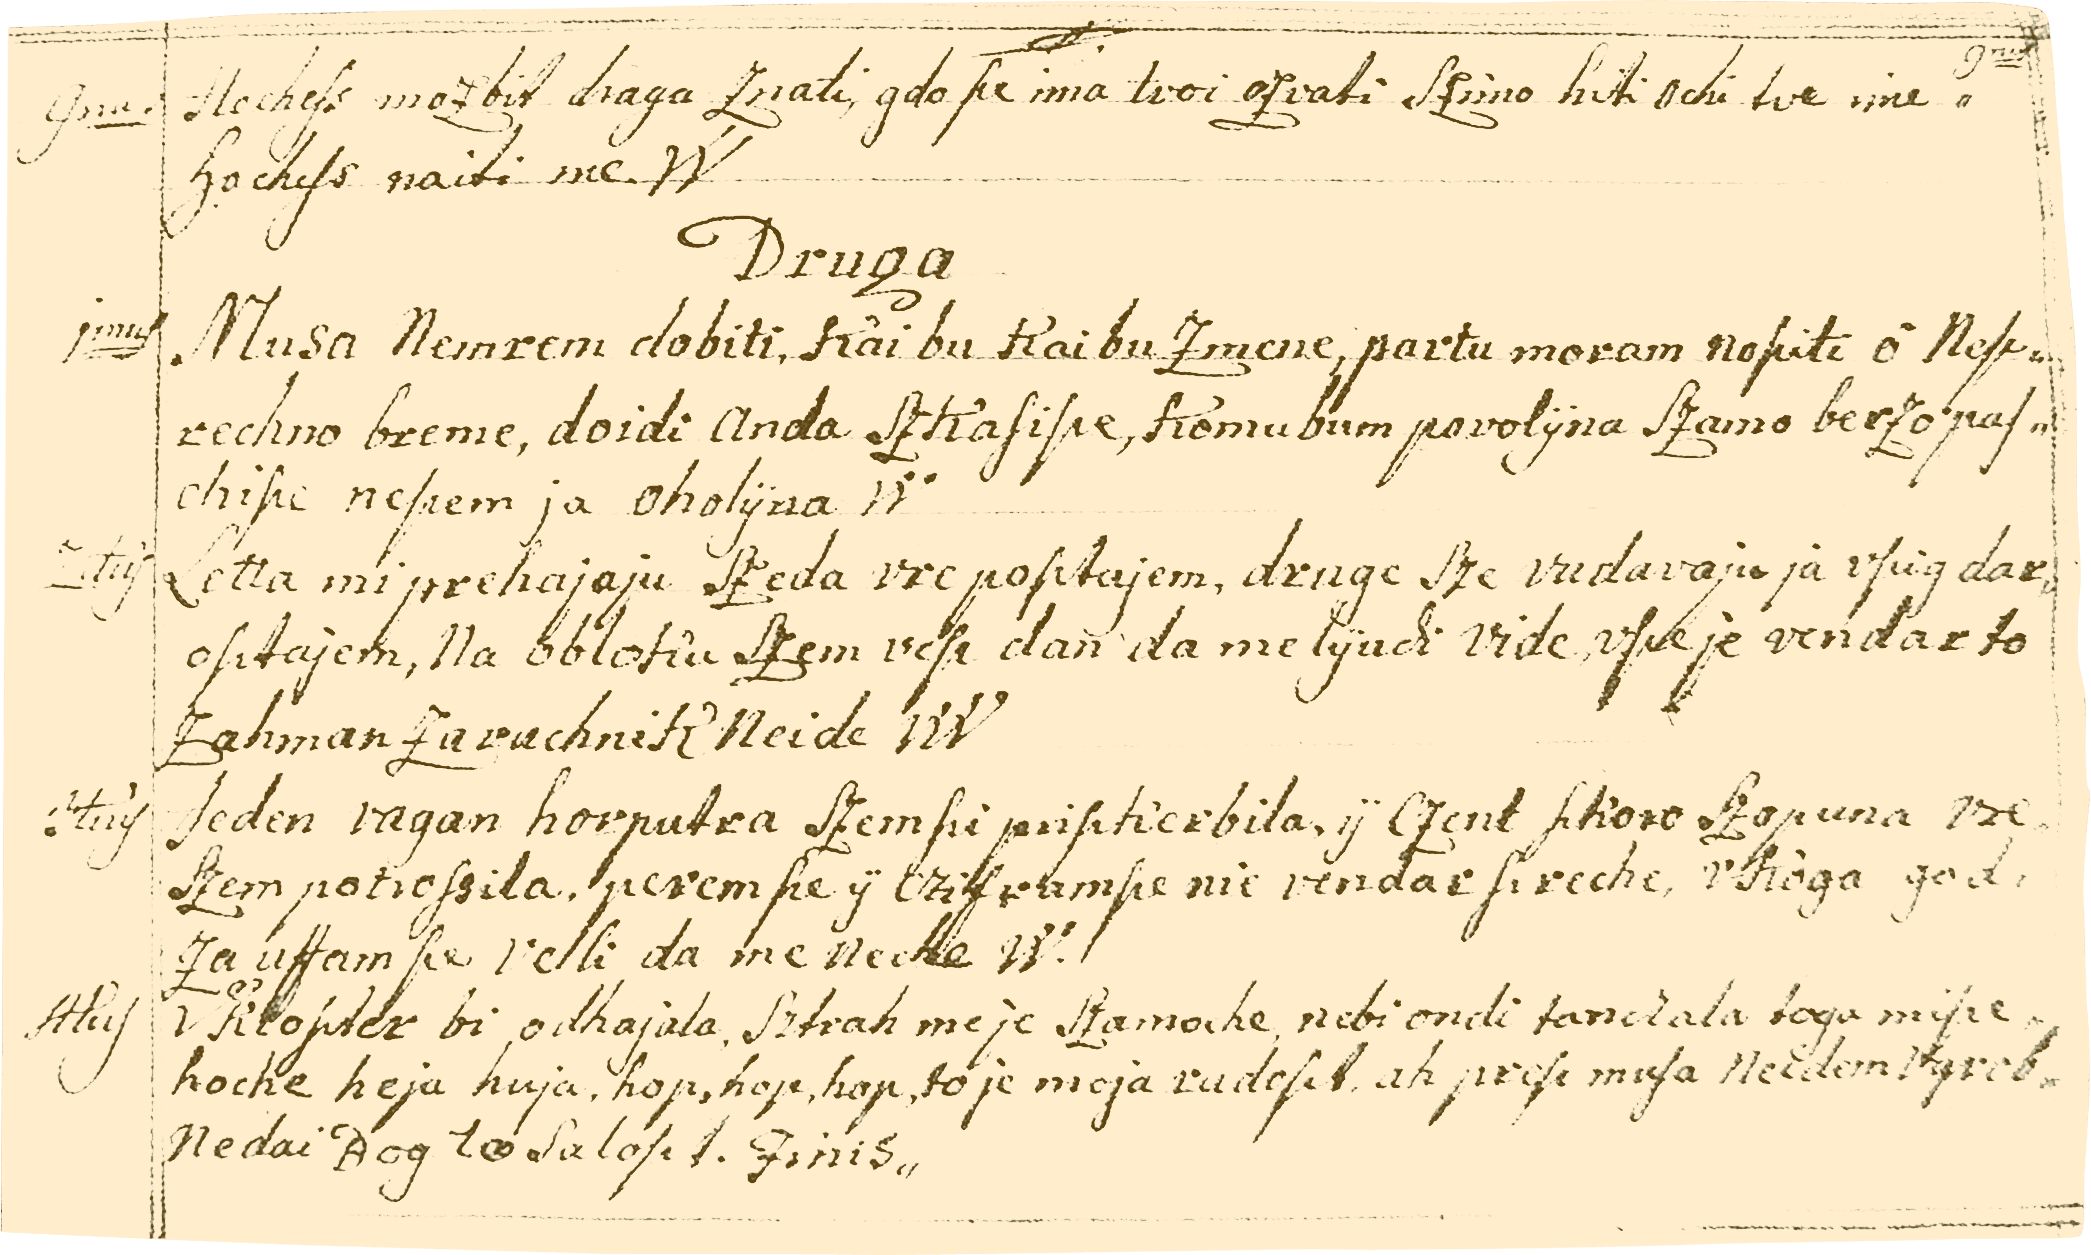 9nus
9nus Hochess mozbit draga Znati, gdo sze ima tvoi ozvati Szimo hiti ochi tve ime „
hochess naiti me. W
Druga
jmus Musa Nemrem dobiti, Kai bu Kai bu Zmene, partu moram nosziti ô Nesz„
rechno breme, doidi anda SzKasisze, Komu bum povolyna Szamo berzo pas„
chisze neszem ja oholyna W
2dus Letta mi prehajaju Szeda vre posztajem, druge Sze vudavaju ja vszig dar„
osztajem, Na obloku Szem vesz dan da me lyudi vide, vsze je vendar to
Zahman Zaruchnik Neide W
3tius Jeden vagan horputra Szem szi priszkerbila, ÿ Czent szkoro Szopuna vre
Szem potrossila, perem sze ÿ Cziframsze nie vendar szreche, vKoga god
Zauffam sze velli da me neche W.
4tus vKloszter bi odhajala, Sztrah me je Szamoche, nebi ondi tanczala toga misze„
hoche heja huja, hop, hop, hop, to je moja radoszt, ah presz musa Neidem Vgrob„
Nedai Bog to Saloszt. Finis„